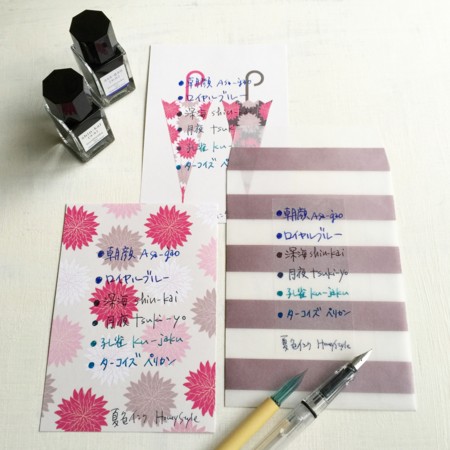 ●朝顔 Asa-gao
●ロイヤルブルー
●深海 shin-kai
●月夜 tsuki-yo
●孔雀 ku-jaku
●ターコイズ ペリカン
●朝顔 Asa-gao
●ロイヤルブルー
●深海 shin-kai
●月夜 tsuki-yo
●孔雀 ku-jaku
●ターコイズ ペリカン
夏色インク
●朝顔 Asa-gao
●ロイヤルブルー
●深海 shin-kai
●月夜 tsuki-yo
●孔雀 ku-jaku
●ターコイズ ペリカン
夏色インク